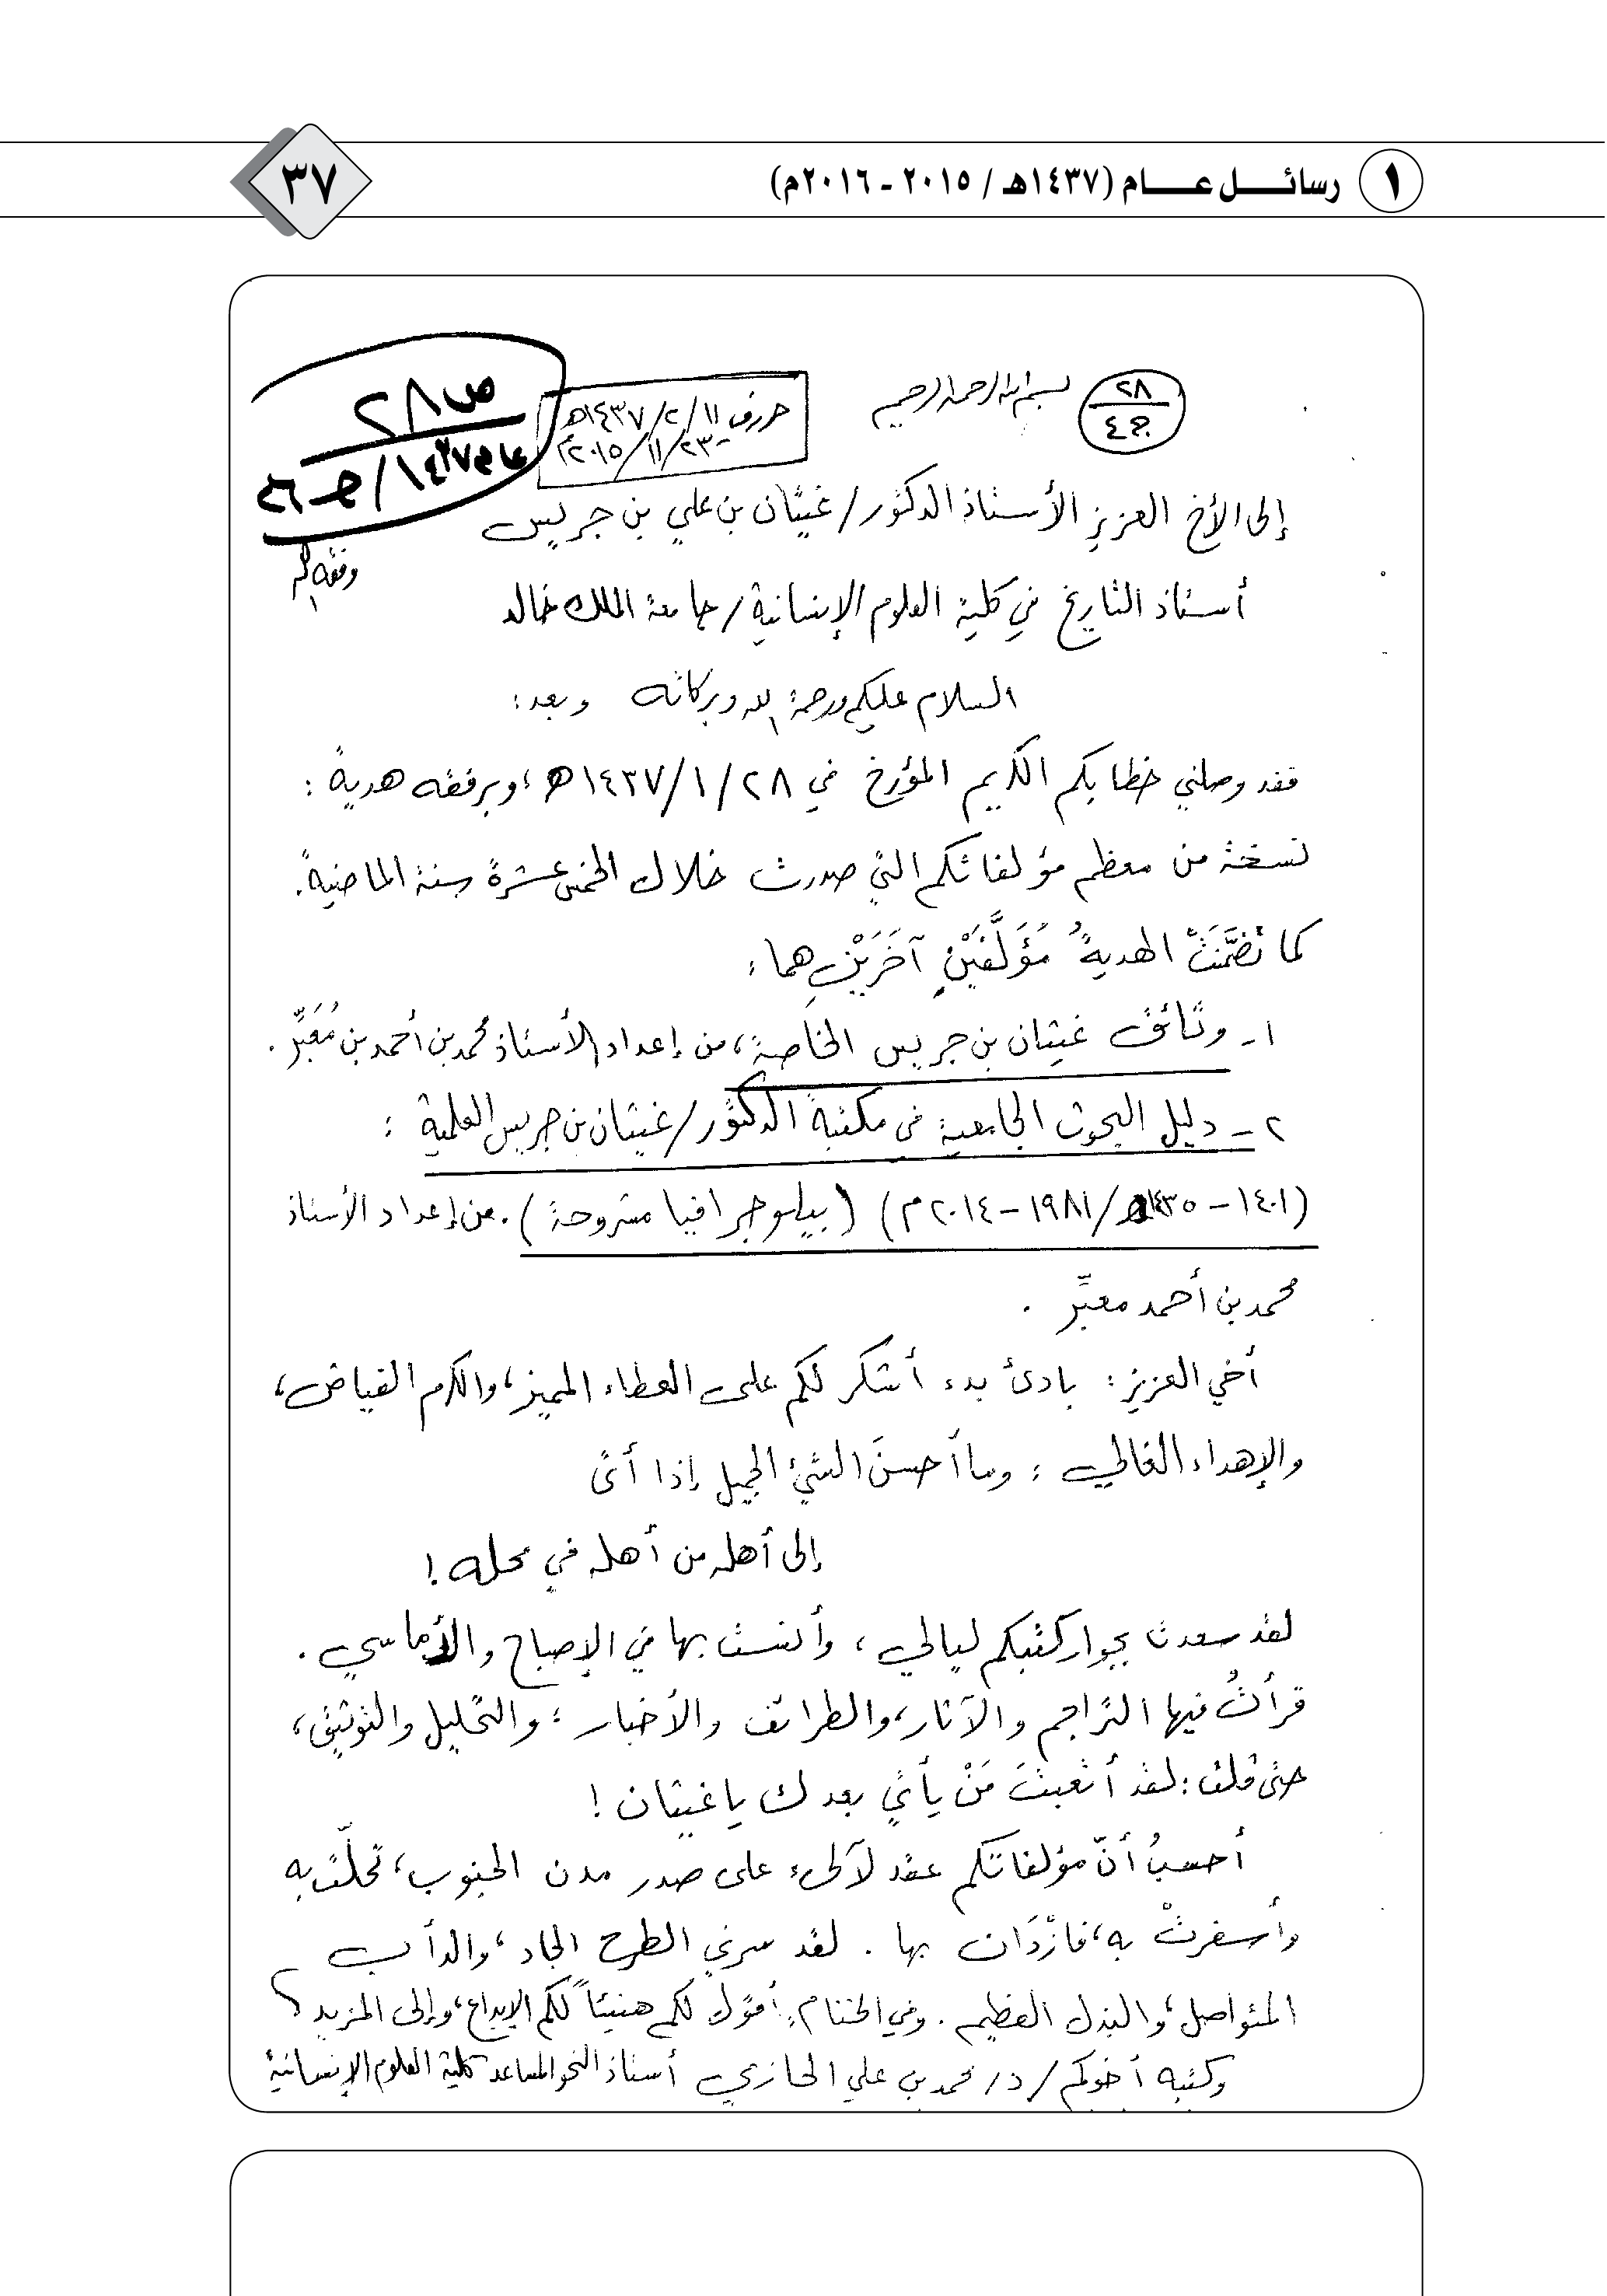 ١ رسائــــل عـــــام (١٤٣٧هـ / ٢٠١٥ - ٢٠١٦م)
٣٧
٢٨
ج٤
بسم الله الرحمن الرحيم
حرر في ١١/ ٢/ ١٤٣٧هـ
٢٣/ ١١/ ٢٠١٥م
ص ٢٨
عام ١٤٣٧هـ/
وفقه الله
إلى الأخ العزيز الأستاذ الدكتور/ غيثان بن علي بن جريس
أستاذ التاريخ في كلية العلوم الإنسانية/ جامعة الملك خالد
السلام عليكم ورحمة الله وبركاته وبعد:
فقد وصلني خطابكم الكريم المؤرخ في ٢٨/ ١/ ١٤٣٧هـ، وبرفقه هدية:
نسخة من معظم مؤلفاتكم التي صدرت خلال الخمس عشرة سنة الماضية.
كما تضمَّنَتْ الهديةُ مُؤَلَّفَيْنِ آخَرَيْنِ هما:
١- وثائق غيثان بن جريس الخاصة، من إعداد الأستاذ محمد بن أحمد بن مُعَبِّر.
٢- دليل البحوث الجامعية في مكتبة الدكتور/ غيثان بن جريس العلمية:
(١٤٠١ - ١٤٣٥هـ/ ١٩٨١ - ٢٠١٤م) (ببليوجرافيا مشروحة). من إعداد الأستاذ
محمد بن أحمد معبِّر.
أخي العزيز: بادئ بدء أشكر لكم على العطاء المميز، والكرم الفياض،
والإهداء الغالي: وما أحسنَ الشيءَ الجميل إذا أتى
إلى أهله من أهله في محله!
لقد سعدت بجوار كتبكم ليالي، وأنست بها في الإصباح والأماسي.
قرأتُ فيها التراجم والآثار، والطرائف والأخبار؛ والتحليل والتوثيق،
حتى قلت: لقد أتعبتَ مَنْ يأتي بعدك يا غيثان!
أحسبُ أنّ مؤلفاتكم عقد لآلئ على صدر مدن الجنوب، تحلّت به
وأسفرتْ به، فازْدَان بها. لقد سرني الطرح الجاد، والدأب
المتواصل، والبذل العظيم. وفي الختام: أقول لكم هنيئاً لكم الإبداع، وإلى المزيد
وكتبه أخوكم/ د/ محمد بن علي الحازي أستاذ النحو المساعد كلية العلوم الإنسانية